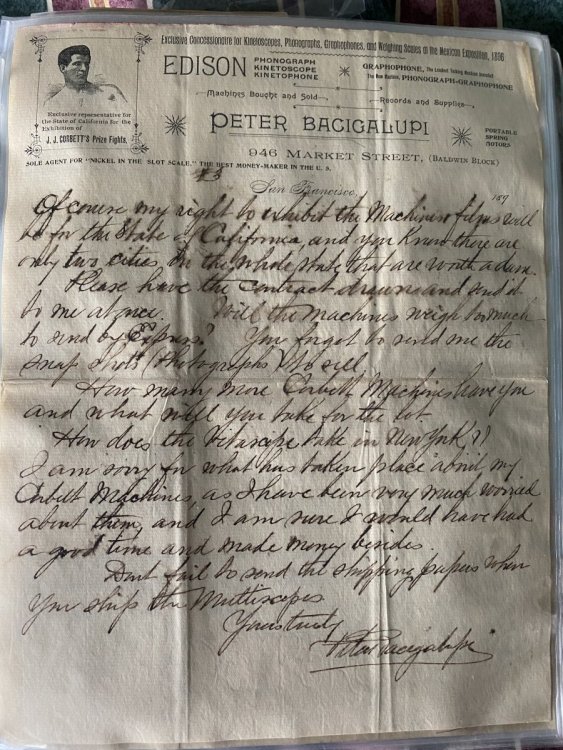 Exclusive Concessionaire for Kinetoscopes, Phonographs, Graphophones, and Weighing Scales at the Mexican Exposition, 1896
EDISON PHONOGRAPH
KINETOSCOPE
KINETOPHONE
GRAPHOPHONE, The Loudest Talking Machine Invented
The New Machine, PHONOGRAPH-GRAPHOPHONE
Machines Bought and Sold
Records and Supplies
Exclusive representative for
the State of California for the
Exhibition of
J. J. CORBETT'S Prize Fights.
PETER BACIGALUPI
PORTABLE
SPRING
MOTORS
946 MARKET STREET, (BALDWIN BLOCK)
SOLE AGENT FOR "NICKEL IN THE SLOT SCALE," THE BEST MONEY-MAKER IN THE U. S.
#3
San Francisco, 189
Of course my right to exhibit the Machines films will
be for the State of California and you know there are
only two cities in the whole state that are worth a damn.
Please have the contract drawn and send it
to me at once. Will the machines weigh too much
to send by Express? You forgot to send me the
snap shots (Photographs) to sell
How many more Corbett Machines have you
and what will you take for the lot
How does the Vitascope take in New York?
I am sorry for what has taken place about my
Corbett Machines, as I have been very much worried
about them, and I am sure I would have had
a good time and made money besides.
Dont fail to send the shipping papers when
you ship the Mutiscopes
Yours truly
Peter Bacigalupi